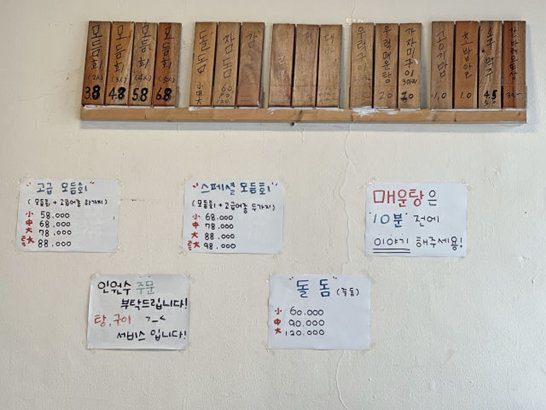 모둠회 (2人) 3.8
모둠회 (3人) 4.8
모둠회 (4人) 5.8
모둠회 (5人) 6.8
돌돔 小 中 大
참돔
우럭구이
우럭매운탕 2.0
가자미구이 2.0
공기밥 1.0
초밥알 1.0
4.5
"고급 모둠회"
(모둠회 + 고급어종 한가지)
小 58.000
中 68.000
大 78.000
特大 88.000
"스페셜 모둠회"
(모둠회 + 고급어종 두가지)
小 68.000
中 78.000
大 88.000
特大 98.000
매운탕은
"10분" 전에
이야기 해주세용!
인원수 주문
부탁드립니다!
탕, 구이 >_<
서비스 입니다!
"돌돔"
小 60.000
中 90.000
大 120.000